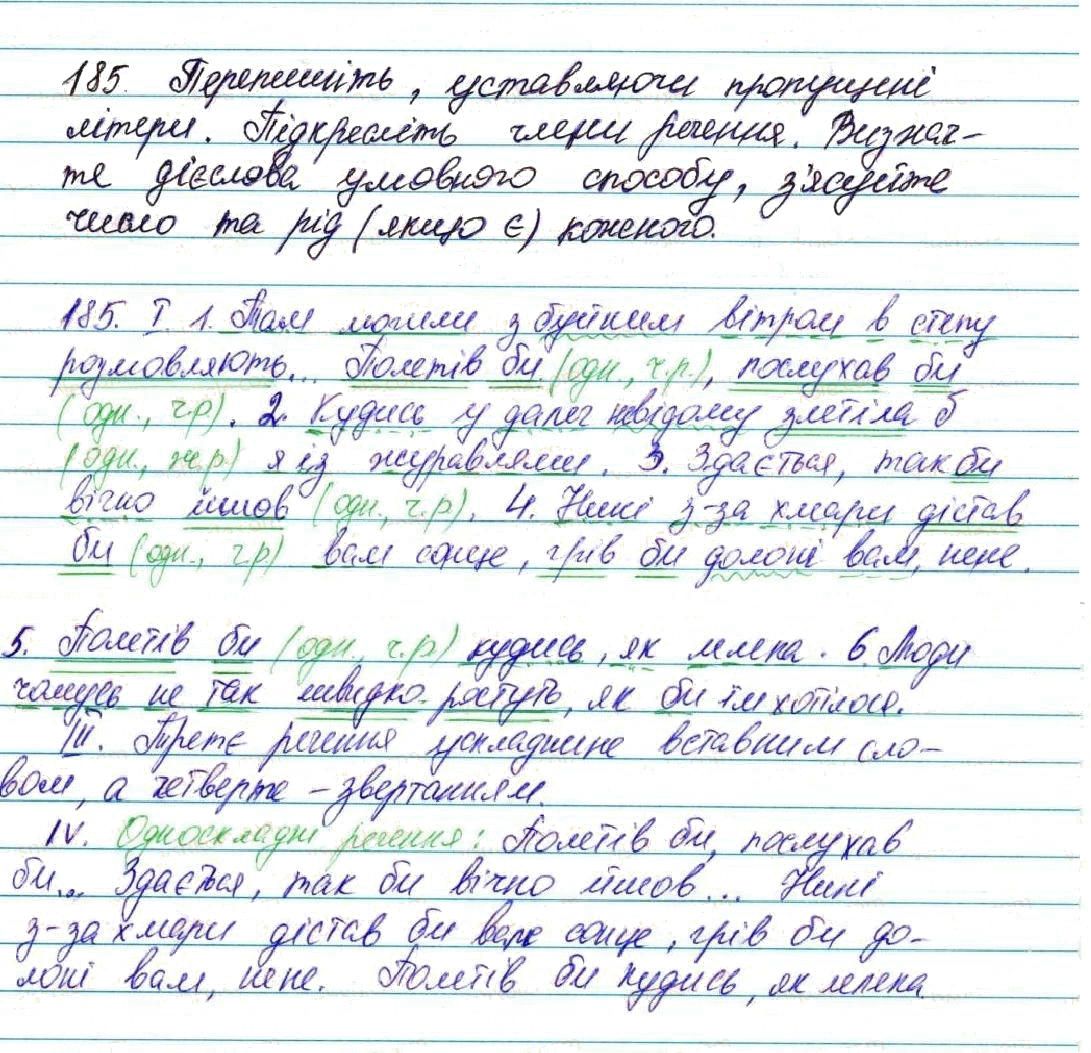 185. Перепишіть, уставляючи пропущені
літери. Підкресліть члени речення. Визнач-
те дієслова умовного способу, з'ясуйте
число та рід (якщо є) кожного.
185. I. 1. Там могили з буйним вітром в степу
розмовляють... Полетів би (одн., ч.р.), послухав би
(одн., ч.р). 2. Кудись у далеч невідому злетіла б
(одн., ж.р) я із журавлями. 3. Здається, так би
вічно йшов (одн., ч.р). 4. Нині з-за хмари дістав
би (одн., ч.р) вам сонце, грів би долоні вам, нене.
5. Полетів би (одн., ч.р) кудись, як лелека. 6. Люди
чомусь не так швидко ростуть, як би їм хотілося.
III. Третє речення ускладнене вставним сло-
вом, а четверте - звертанням.
IV. Односкладні речення: Полетів би, послухав
би... Здається, так би вічно йшов... Нині
з-за хмари дістав би вам сонце, грів би до-
лоні вам, нене. Полетів би кудись, як лелека